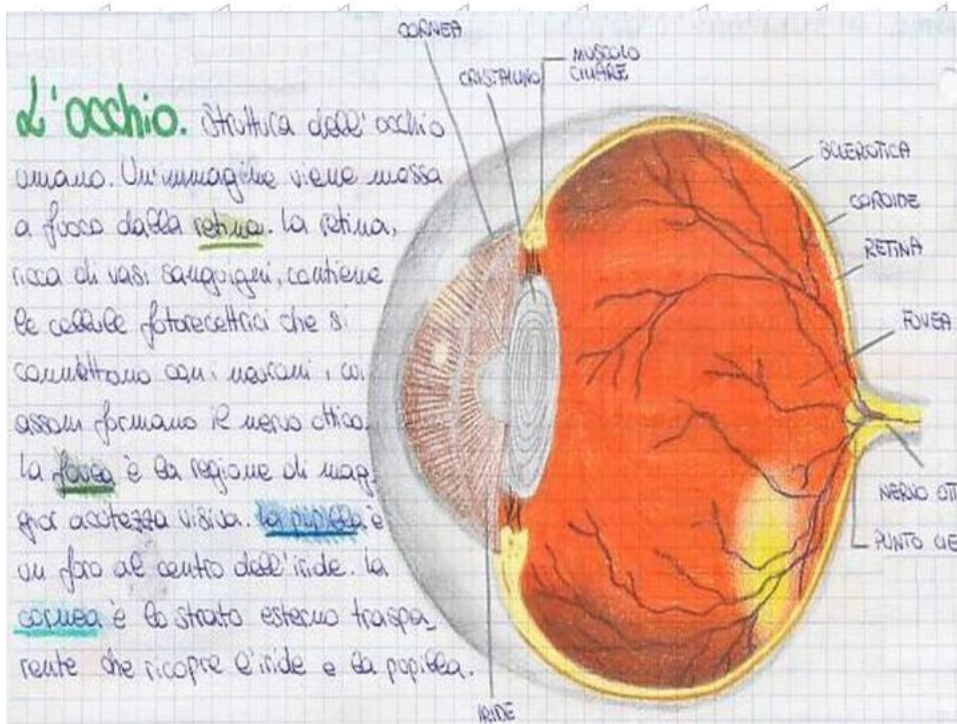 CORNEA
CRISTALLINO
MUSCOLO
CILIARE
L'occhio. Struttura dell'occhio
umano. Un'immagine viene messa
a fuoco dalla retina. La retina,
ricca di vasi sanguigni, contiene
le cellule fotorecettrici che si
connettono con i neuroni i cui
assoni formano il nervo ottico.
La fovea è la regione di mag_
gior acutezza visiva. La pupilla è
un foro al centro dell'iride. La
cornea è lo strato esterno traspa_
rente che ricopre l'iride e la pupilla.
SCLEROTICA
COROIDE
RETINA
FOVEA
NERVO OTT
PUNTO CIE
IRIDE